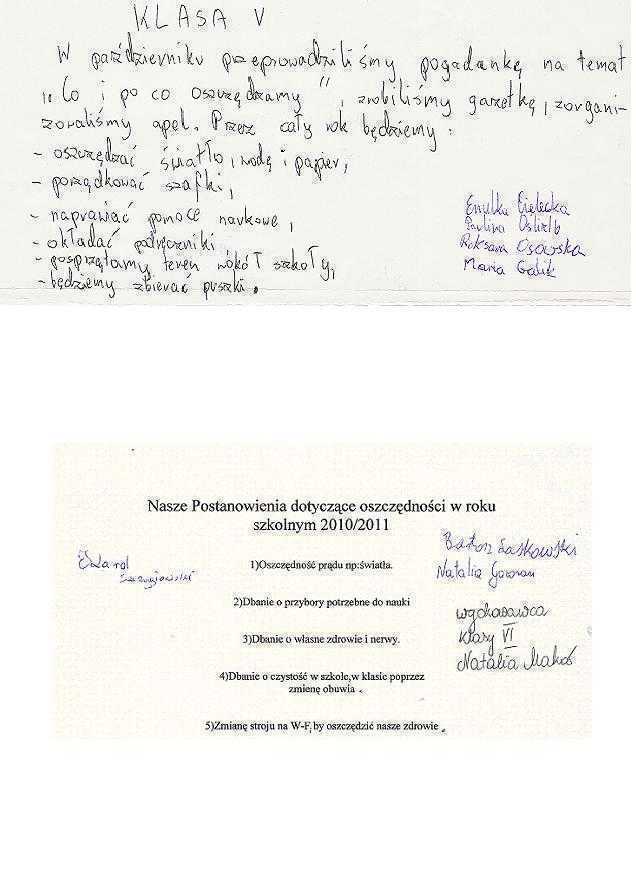 KLASA V
W październiku przeprowadziliśmy pogadankę na temat
"Co i po co oszczędzamy", zrobiliśmy gazetkę, zorgani-
zowaliśmy apel. Przez cały rok będziemy:
- oszczędzać światło, wodę i papier,
- porządkować szafki,
- naprawiać pomoce naukowe,
- okładać podręczniki
- posprzątamy teren wokół szkoły,
- będziemy zbierać puszki.
Emilka Cielecka
Paulina
Roksana Osowska
Maria Galik
Nasze Postanowienia dotyczące oszczędności w roku
szkolnym 2010/2011
Karol
Bartosz Laskowski
Natalia
1)Oszczędność prądu np:światła.
2)Dbanie o przybory potrzebne do nauki
wychowawca
klasy VI
Natalia
3)Dbanie o własne zdrowie i nerwy.
4)Dbanie o czystość w szkole,w klasie poprzez
zmienę obuwia .
5)Zmianę stroju na W-F, by oszczędzić nasze zdrowie .